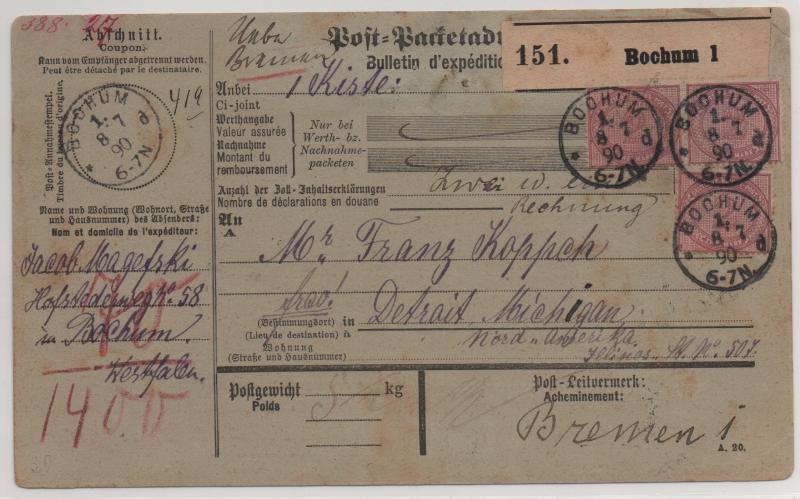 388. 27
Abschnitt.
Coupon.
Kann vom Empfänger abgetrennt werden.
Peut être détaché par le destinataire.
Post-Annahmestempel.
Timbre du bureau d'origine.
BOCHUM
1.
8 7 d
90
* 6-7N.
419
Name und Wohnung (Wohnort, Straße
und Hausnummer) des Absenders:
Nom et domicile de l'expéditeur:
Jacob Magefski
Hofstederweg No. 58
in Bochum.
Westfalen.
1400
Bremen
Post-Packetad
Bulletin d'expéditio
151. Bochum 1
Anbei
Ci-joint
1 Kiste:
Werthangabe
Valeur assurée
Nachnahme
Montant du
remboursement
Nur bei
Werth- bz.
Nachnahme-
packeten
BOCHUM
1.
8 7 d
90
* 6-7N.
BOCHUM
1.
8 7 d
90
* 6-7N.
BOCHUM
1.
8 7 d
90
* 6-7N.
Anzahl der Zoll-Inhaltserklärungen
Nombre de déclarations en douane
Zwei
Rechnung
An
A
Mr. Franz Koppch
frco!
(Bestimmungsort)
(Lieu de destination)
in
à
Detroit Michigan
Nord-Amerika
Wohnung
(Straße und Hausnummer)
Illinos St. No. 507.
Postgewicht
Poids
kg
Post-Leitvermerk:
Acheminement:
Bremen 1
A. 20.